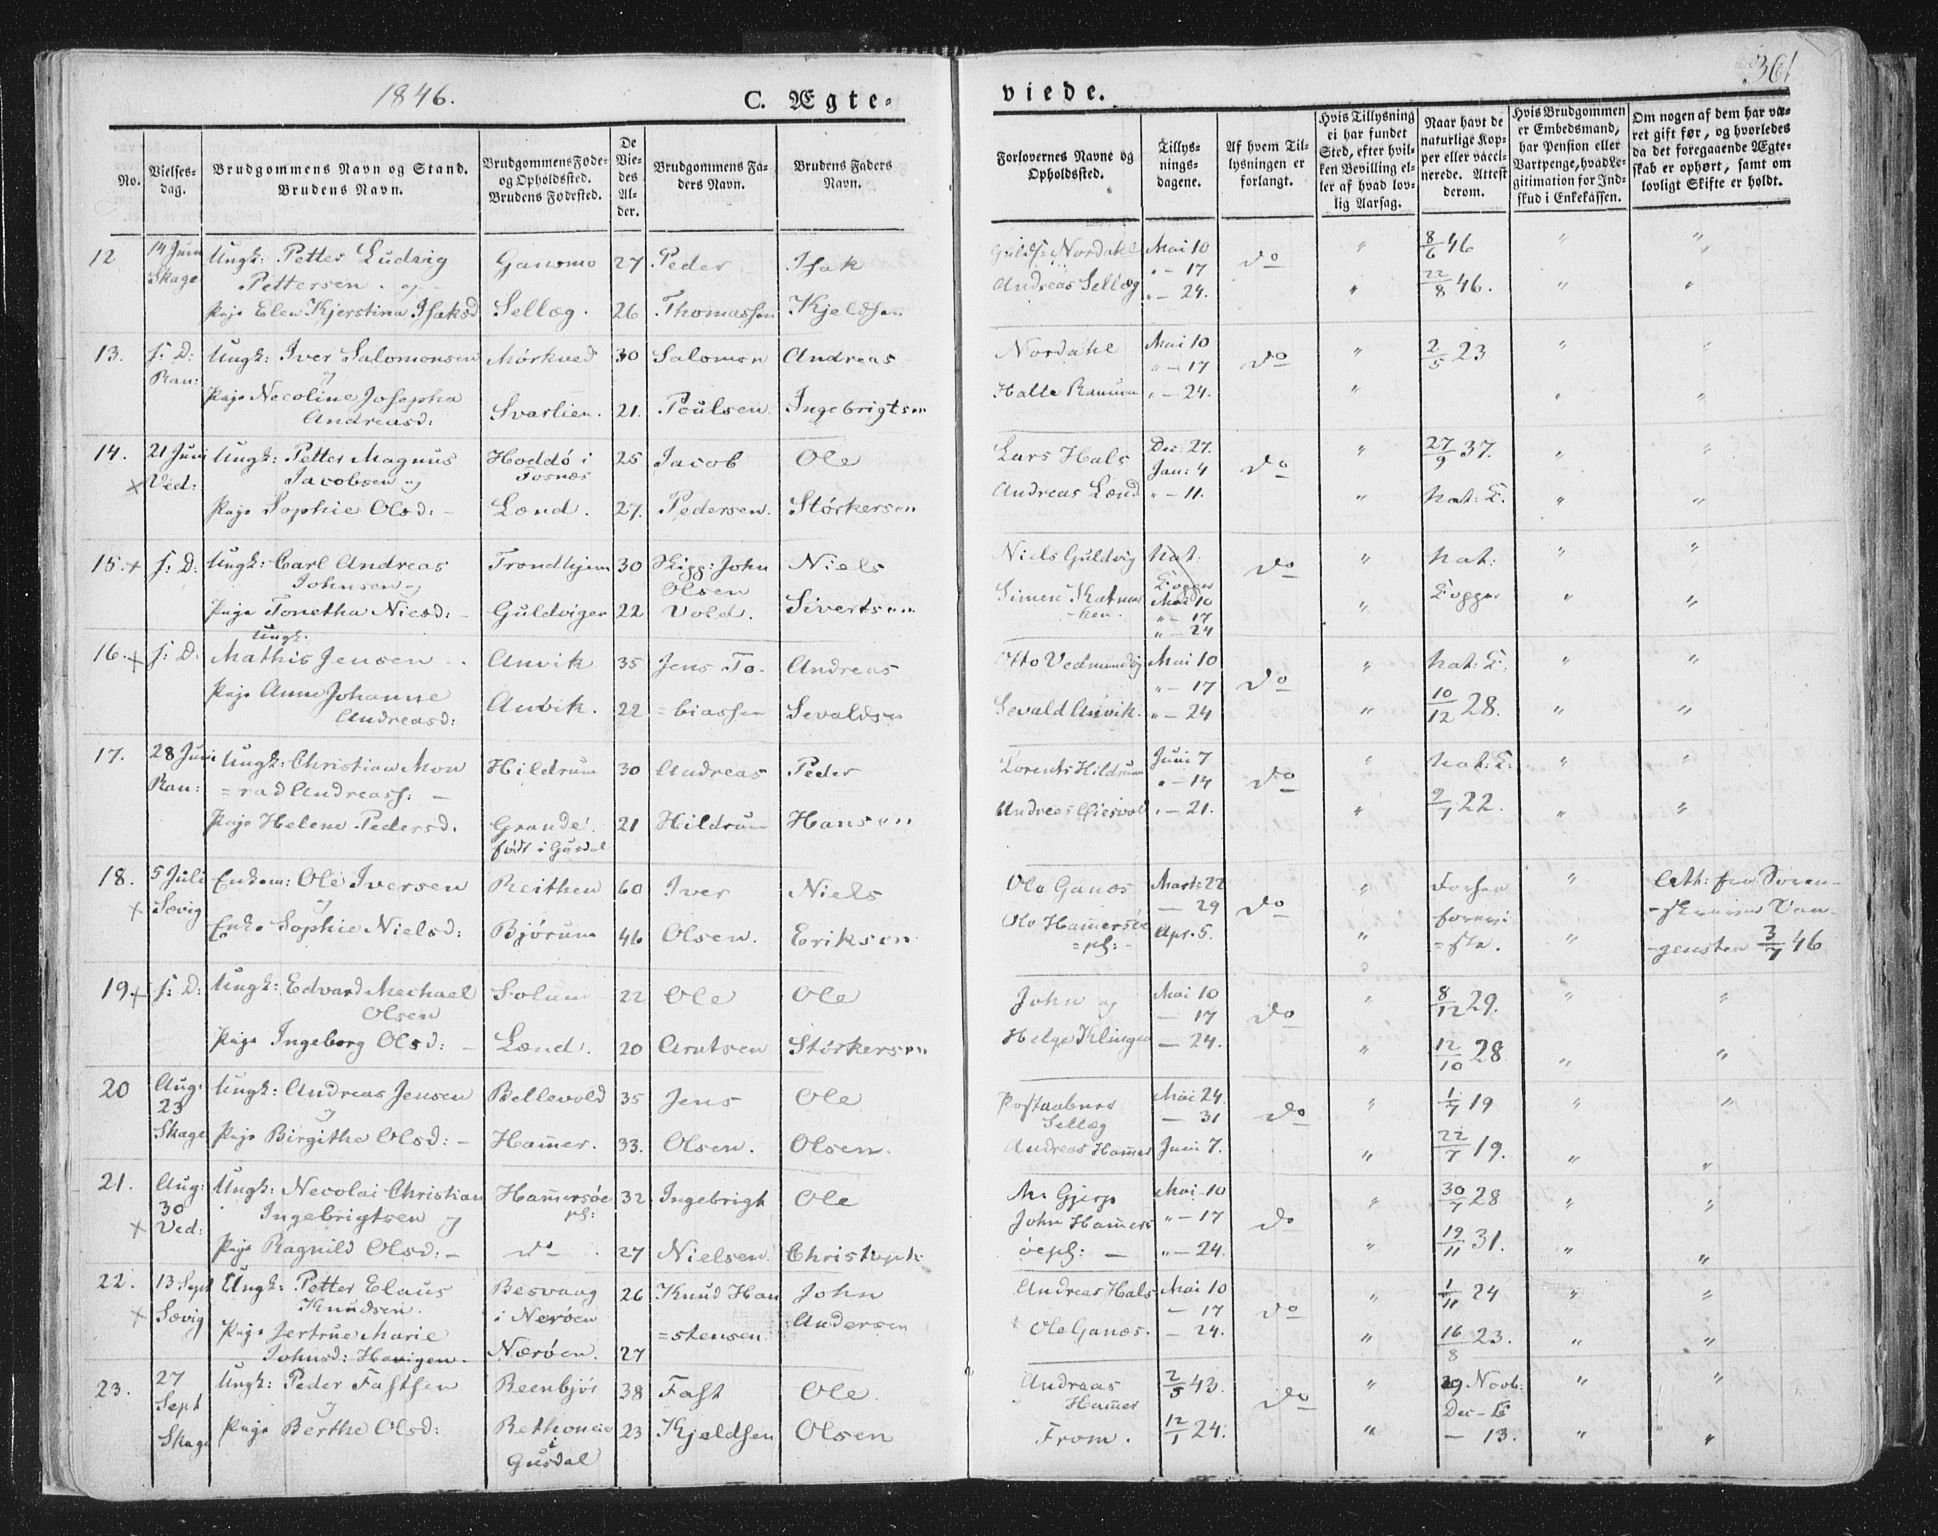 1846.
C. Ægte-
viede.
361
No.
Vielses-
dag.
Brudgommens Navn og Stand.
Brudens Navn.
Brudgommens Føde-
og Opholdssted.
Brudens Fødested.
De
Vie-
des
Al-
der.
Brudgommens Fa-
ders Navn.
Brudens Faders
Navn.
Forlovernes Navne og
Opholdssted.
Tillys-
nings-
dagene.
Af hvem Til-
lysningen er
forlangt.
Hvis Tillysning
ei har fundet
Sted, efter hvil-
ken Bevilling el-
ler af hvad lov-
lig Aarsag.
Naar havt de
naturlige Kop-
per eller vacci-
nerede. Attest
derom.
Hvis Brudgommen
er Embedsmand,
har Pension eller
Vartpenge, hvad Le-
gitimation for Ind-
skud i Enkekassen.
Om nogen af dem har væ-
ret gift før, og hvorledes
da det foregaaende Ægte-
skab er ophørt, samt om
lovligt Skifte er holdt.
12 14 Juni Ungk: Petter Ludvig Ganomo 27 Peder Isak Nordahl Mai 10 do " 8/6 46 " "
Skage Pettersen og " - 17
Pige Elen Kjerstina Isaksd Sellæg. 26 Thomassen Kjeldsen Andreas Sellæg " - 24. " 22/8 46. " "
13. s: D: Ungk: Iver Salomonsen Mørkved 30 Salomon Andreas Nordahl Mai 10 do " 2/5 23 " "
Ran: og " - 17
Pige Necoline Josepha Svarlien. 21. Poulsen. Ingebrigtsen Halte Ranum " - 24. " " "
Andreasd:
14. 21 Juni Ungk: Petter Magnus Hoddö i 25 Jacob Ole Lars Hals Dec: 27. do " 27/9 37. " "
× Ved: Jacobsen og Fosnæs Jan: 4
Pige Sophie Olsd: - Lænd. 27. Pedersen. Störkersen Andreas Lænd " - 11. " nat: K. " "
15. × s: D: Ungk: Carl Andreas Trondhjem 30 John Niels Niels Guldvig nat: do " nat: " "
Johnsen og Olsen Kopper
Pige Tonetha Nielsd: - Guldvigen 22 Vold. Sivertsen Simen Mai 10 " Kopper " "
" - 17
" - 24
16. × s: D: Ungk. Mathis Jensen Anvik 35 Jens To- Andreas Otto Vedmundvig Mai 10 do " nat: K. " "
Pige Anne Johanne " - 17
Andreasd: Anvik. 22 =biassen Sevaldsen Sevald Anvik. " - 24 " 10/12 28. " "
17. 28 Juni Ungk: Christian Mon Hildrum 30 Andreas Peder Lorents Hildrum Juni 7 do " nat: K: " "
Ran: =rad Andreass: - " - 14
Pige Helene Pedersd. Grande. 21 Hildrum Hansen Andreas " - 21. " 2/7 22. " "
født i Gusdal
18. 5 Juli Enkem: Ole Iversen Reithen 60 Iver Niels Ole Ganæs Mart: 22 do " "
× Sævig og - 29
Enke Sophie Nielsd: Bjørum 46 Olsen. Eriksen Ole Hamersöe Apr. 5. " "
=pl: - 3/7 46
19 × s: D: Ungk: Edvard Mechael Solum 22 Ole Ole John og Mai 10 do " 8/12 29. " "
Olsen - 17
Pige Ingeborg Olsd: - Lænd. 20 Arntsen Störkersen Helge Klingen - 24. " 12/10 28 " "
20 Aug. Ungk: Andreas Jensen Bellevold 35 Jens Ole Postaabner Mai 24 do " 1/7 19 " "
23 og Sellæg - 31
Skage Pige Birgithe Olsd: - Hamer. 33. Olsen. Olsen. Andreas Hamer Juni 7. " 22/7 19. " "
21. Aug: Ungk: Necolai Christian Hamersöe 32 Ingebrigt Ole M. Gjerp Mai 10 do " 30/7 28 " "
30 Ingebrigtsen og pl: John Hamers " - 17
× Ved: Pige Ragnild Olsd: - do 27 Nielsen. Christoph öepl: - " - 24. " 19/11 31. " "
22. 13 Sept Ungk: Petter Elaus Besvaag 26 Knud Han John Andreas Hals Mai 10 do " 1/11 24 " "
× Sævig Knudsen. i Nerøen Andersen - 17
Pige Jertrue Marie =stensen Ole Ganæs. - 24. " 16/8 23. " "
Johnsd: Havigen. Nærøen. 27
23. 27 Ungk: Peder Fastsen Reenbjör 38 Fast Ole. Andreas 2/5 43. do " 29 Novb: " "
Sept og Hamer Dec - 6
Skage Pige Berthe Olsd: 23 Kjeldsen Olsen From. 12/1 24. " - 13. " "
i
Gusdal